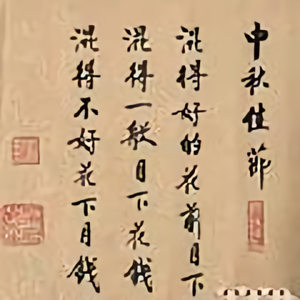 中秋佳节
混得好的花前月下
混得一般月下花钱
混得不好花下月钱